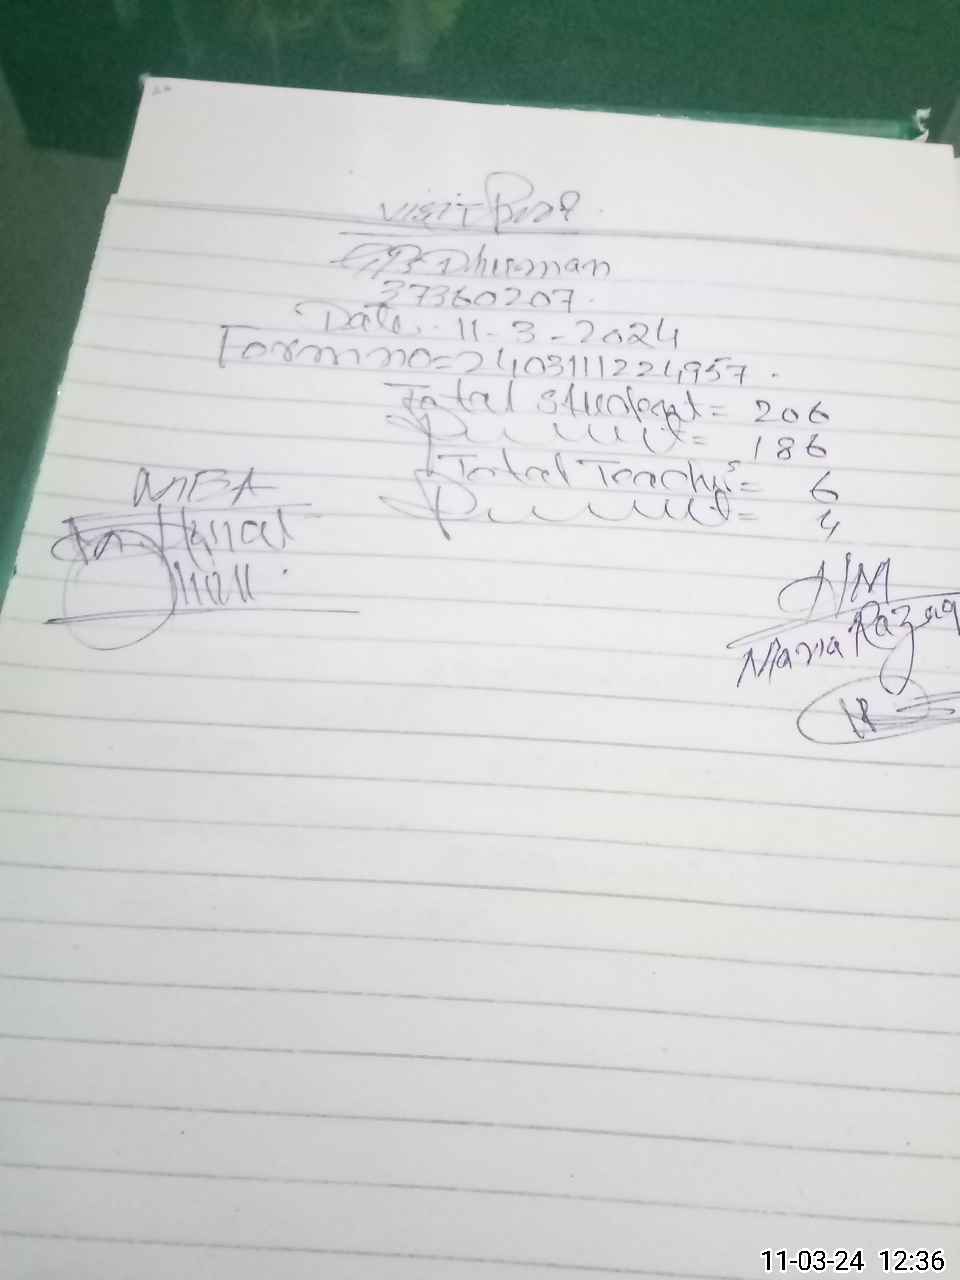 Visit
Dhurnan
37360207.
Date. 11-3-2024
Form no=2403111224957.
Total student= 206
Present= 186
Total Teachers= 6
Present= 4
MEA
AM
Maria Razaq
11-03-24 12:36